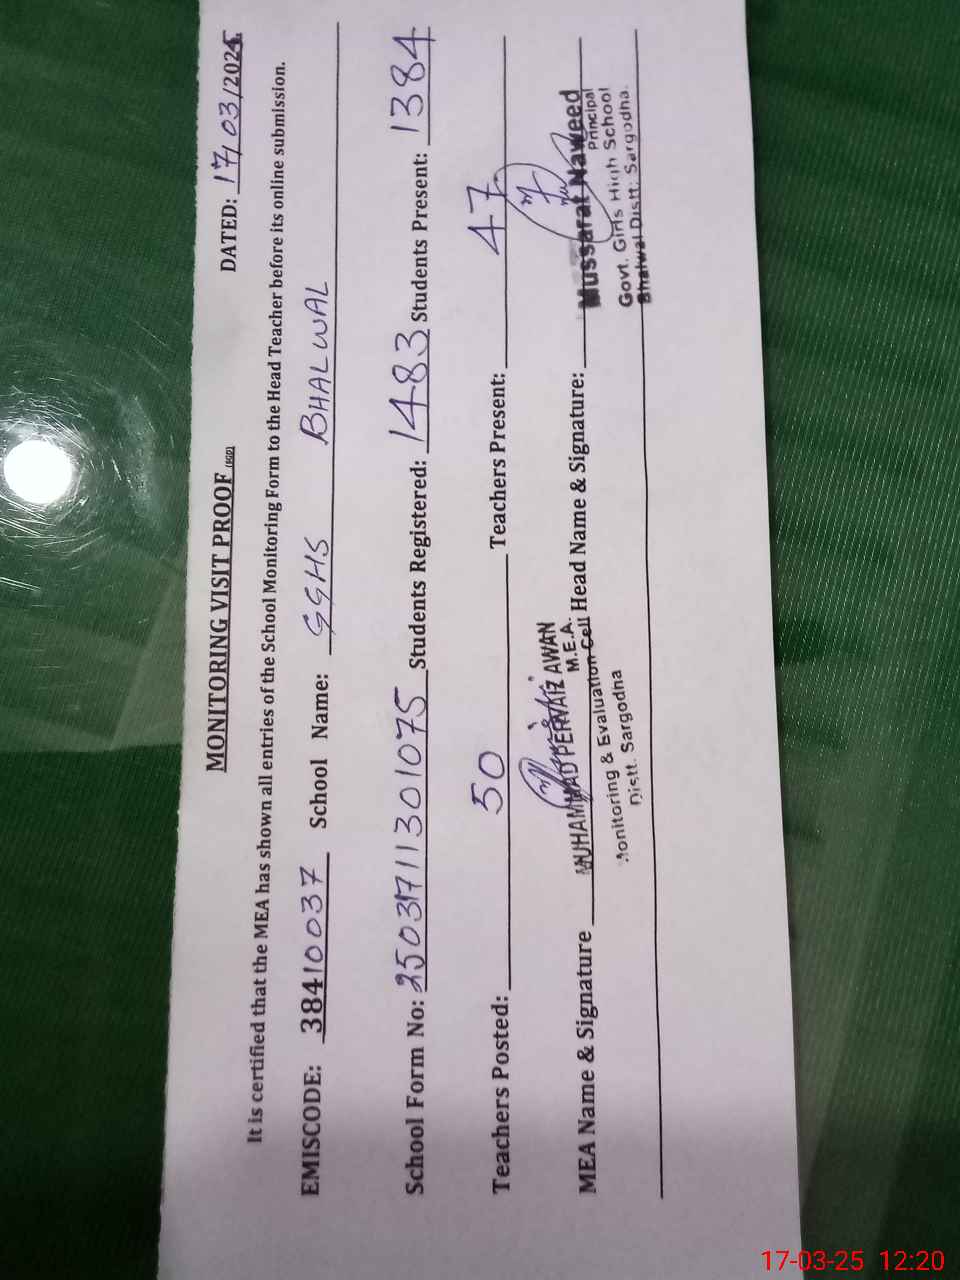 MONITORING VISIT PROOF (SGD)
DATED: 17/03/2025
It is certified that the MEA has shown all entries of the School Monitoring Form to the Head Teacher before its online submission.
EMISCODE: 38410037 School Name: GGHS BHALWAL
School Form No: 25031711301075 Students Registered: 1483 Students Present: 1384
Teachers Posted: 50 Teachers Present: 47
MEA Name & Signature MUHAMMAD PERVAIZ AWAN Head Name & Signature: Mussarat Naweed
M.E.A. Principal
Monitoring & Evaluation Cell Govt. Girls High School
Distt. Sargodha Bhalwal Distt: Sargodha.
17-03-25 12:20